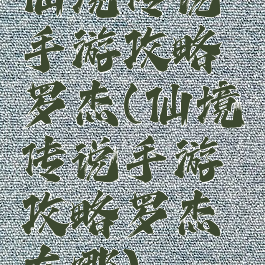 仙境传说
手游攻略
罗杰(仙境
传说手游
攻略罗杰
在哪)